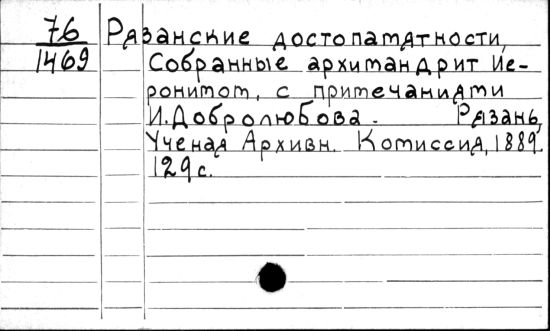 76
1469
Рязанские достопамятности,
Собранные архимандрит Ие-
ронимом, с примечаниями
И. Добролюбова. Рязань,
Ученая Архивн. Комиссия, 1889.
129 с.